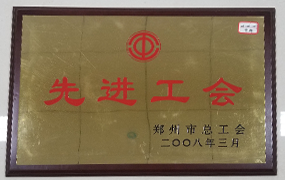 先进工会
郑州市总工会
二〇〇八年三月